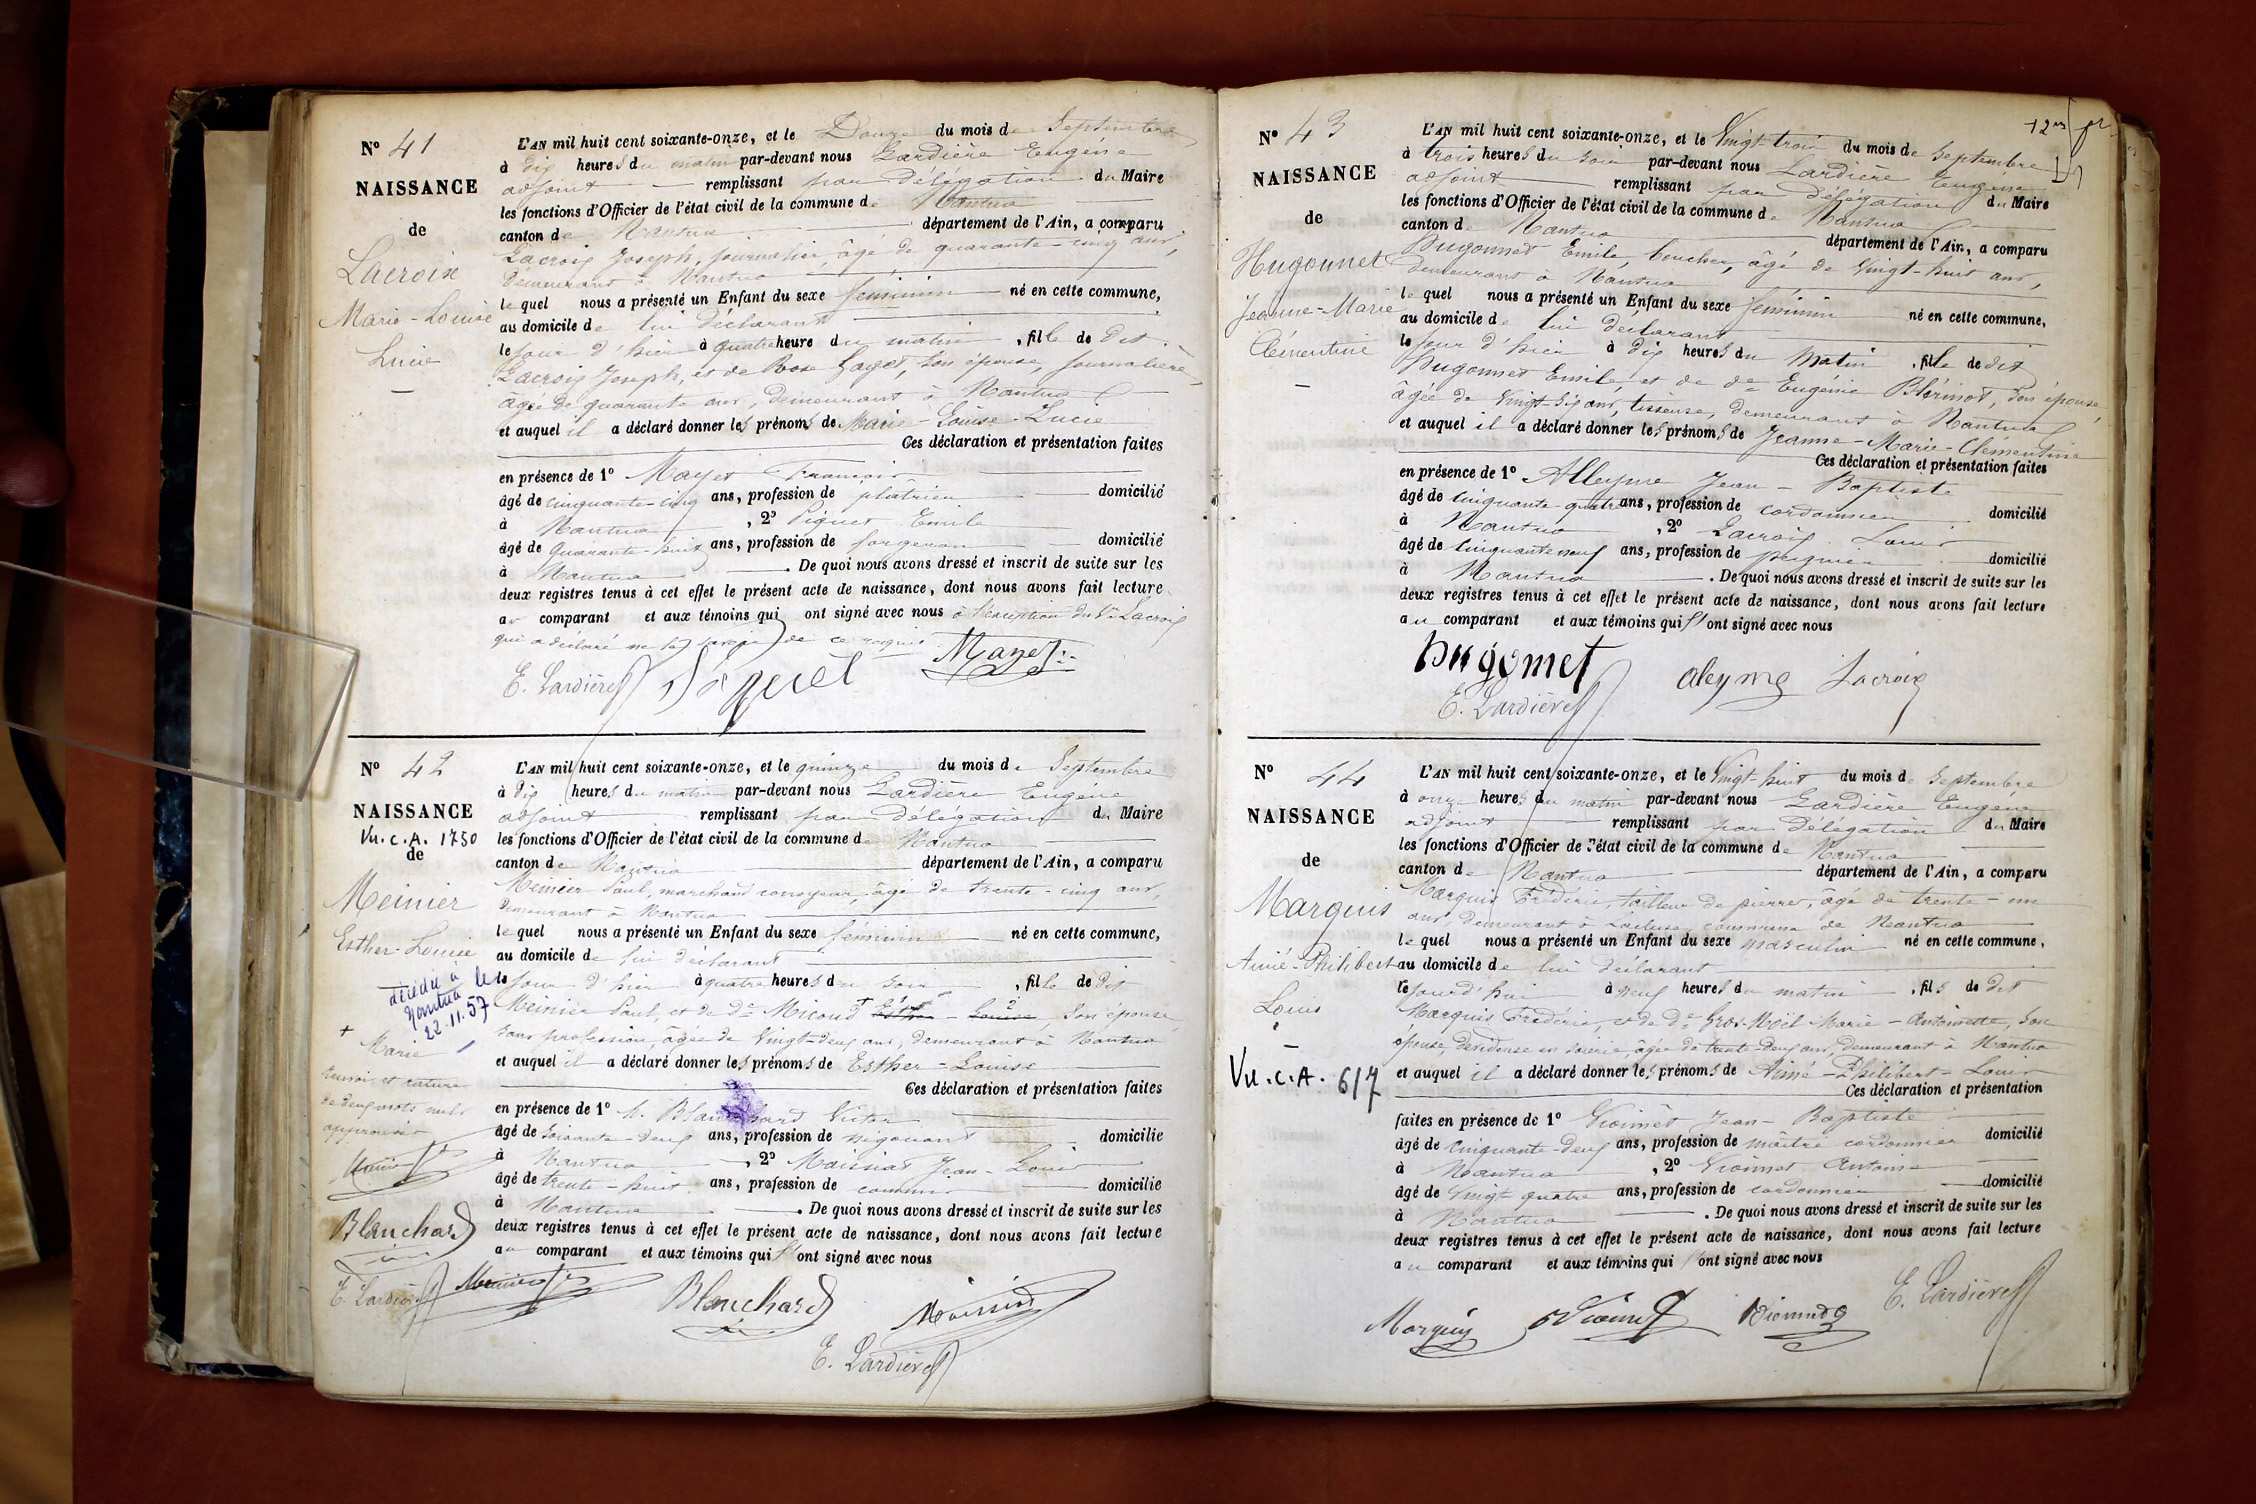 N° 41
NAISSANCE
de
Lacroix
Marie-Louise
Lucie
L'AN mil huit cent soixante-onze, et le Douze du mois de Septembre
à dix heures du matin par-devant nous Lardière Eugène
adjoint remplissant par délégation du Maire
les fonctions d'Officier de l'état civil de la commune de Nantua
canton de Nantua département de l'Ain, a comparu
Lacroix Joseph, journalier, âgé de quarante-cinq ans,
demeurant à Nantua
lequel nous a présenté un Enfant du sexe féminin né en cette commune,
au domicile de lui déclarant
le jour d'hier à quatre heure du matin, fille de dit
Lacroix Joseph, et de Rose Gayet, son épouse, journalière,
âgée de quarante ans, demeurant à Nantua
et auquel il a déclaré donner les prénoms de Marie-Louise-Lucie
Ces déclaration et présentation faites
en présence de 1° Mayet François
âgé de cinquante-cinq ans, profession de plâtrier domicilié
à Nantua, 2° Piquet Emile
âgé de quarante-huit ans, profession de forgeron domicilié
à Nantua. De quoi nous avons dressé et inscrit de suite sur les
deux registres tenus à cet effet le présent acte de naissance, dont nous avons fait lecture
au comparant et aux témoins qui ont signé avec nous à l'exception du Sr Lacroix
qui a déclaré ne le savoir de ce requis
E. Lardière Piquet Mayet
N° 42
NAISSANCE
Vu.C.A. 1750
de
Meinier
Esther-Louise
décédée à
Nantua le
22.11.57
+ Marie
renvoi et rature
de deux mots nuls
approuvés
Meinier
Blanchard
E. Lardière
L'AN mil huit cent soixante-onze, et le quinze du mois de Septembre
à dix heures du matin par-devant nous Lardière Eugène
adjoint remplissant par délégation du Maire
les fonctions d'Officier de l'état civil de la commune de Nantua
canton de Nantua département de l'Ain, a comparu
Meinier Paul, marchand corroyeur, âgé de trente-cinq ans,
demeurant à Nantua
lequel nous a présenté un Enfant du sexe féminin né en cette commune,
au domicile de lui déclarant
le jour d'hier à quatre heures du soir, fille de dit
Meinier Paul, et de de Micoud + Esther-Louise, son épouse,
sans profession, âgée de Vingt-deux ans, demeurant à Nantua
et auquel il a déclaré donner les prénoms de Esther-Louise
Ces déclaration et présentation faites
en présence de 1° M. Blanchard Victor
âgé de soixante-deux ans, profession de négociant domicilié
à Nantua, 2° Moissiat Jean-Louis
âgé de trente-huit ans, profession de commis domicilié
à Nantua. De quoi nous avons dressé et inscrit de suite sur les
deux registres tenus à cet effet le présent acte de naissance, dont nous avons fait lecture
au comparant et aux témoins qui ont signé avec nous
Meinier Blanchard Moissiat
E. Lardière
12es
N° 43
NAISSANCE
de
Hugonnet
Jeanne-Marie
Clémentine
L'AN mil huit cent soixante-onze, et le Vingt-trois du mois de Septembre
à trois heures du soir par-devant nous Lardière Eugène
adjoint remplissant par délégation du Maire
les fonctions d'Officier de l'état civil de la commune de Nantua
canton de Nantua département de l'Ain, a comparu
Hugonnet Emile, boucher, âgé de Vingt-huit ans,
demeurant à Nantua
lequel nous a présenté un Enfant du sexe féminin né en cette commune,
au domicile de lui déclarant
le jour d'hier à dix heures du Matin, fille de dit
Hugonnet Emile et de de Eugénie Blérinot, son épouse,
âgée de Vingt-six ans, tisseuse, demeurant à Nantua
et auquel il a déclaré donner les prénoms de Jeanne-Marie-Clémentine
Ces déclaration et présentation faites
en présence de 1° Alleyme Jean-Baptiste
âgé de cinquante-quatre ans, profession de cordonnier domicilié
à Nantua, 2° Lacroix Louis
âgé de cinquante neuf ans, profession de peignier domicilié
à Nantua. De quoi nous avons dressé et inscrit de suite sur les
deux registres tenus à cet effet le présent acte de naissance, dont nous avons fait lecture
au comparant et aux témoins qui ont signé avec nous
hugonnet aleyme Lacroix
E. Lardière
N° 44
NAISSANCE
de
Marquis
Aimé-Philibert
Louis
Vu.C.A. 617
L'AN mil huit cent soixante-onze, et le Vingt-huit du mois de Septembre
à onze heures du matin par-devant nous Lardière Eugène
adjoint remplissant par délégation du Maire
les fonctions d'Officier de l'état civil de la commune de Nantua
canton de Nantua département de l'Ain, a comparu
Marquis Frédéric, tailleur de pierres, âgé de trente-un
ans, demeurant à commune de Nantua
lequel nous a présenté un Enfant du sexe masculin né en cette commune,
au domicile de lui déclarant
le jour d'hui à neuf heures du matin, fils de dit
Marquis Frédéric, et de de Gros-Noël Marie-Antoinette, son
épouse, dévideuse en soierie, âgée de trente-deux ans, demeurant à Nantua
et auquel il a déclaré donner les prénoms de Aimé-Philibert-Louis
Ces déclaration et présentation
faites en présence de 1° Vionnet Jean-Baptiste
âgé de cinquante-deux ans, profession de maître cordonnier domicilié
à Nantua, 2° Vionnet Antoine
âgé de vingt quatre ans, profession de cordonnier domicilié
à Nantua. De quoi nous avons dressé et inscrit de suite sur les
deux registres tenus à cet effet le présent acte de naissance, dont nous avons fait lecture
au comparant et aux témoins qui ont signé avec nous
Marquis Vionnet Vionnet E. Lardière